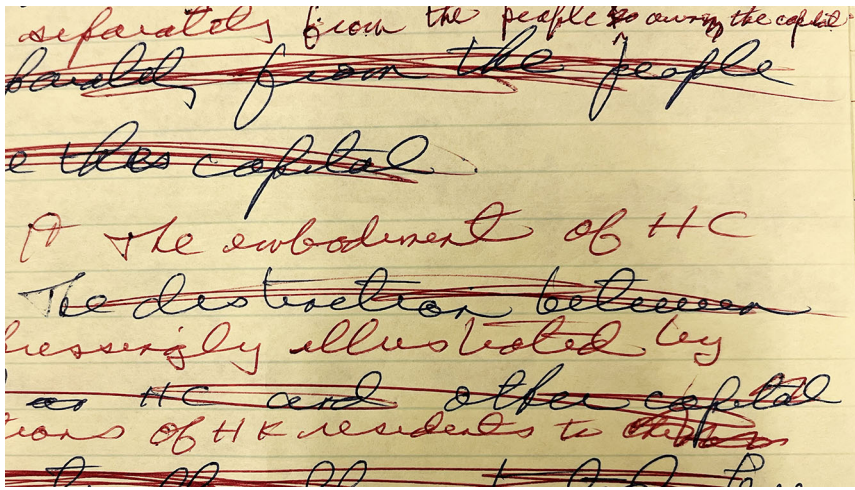 separately from the people so owning the capital
from the people
e this capital
The embodiment of HC
The distinction between
essingly illustrated by
as HC and other capital
tions of HK residents to